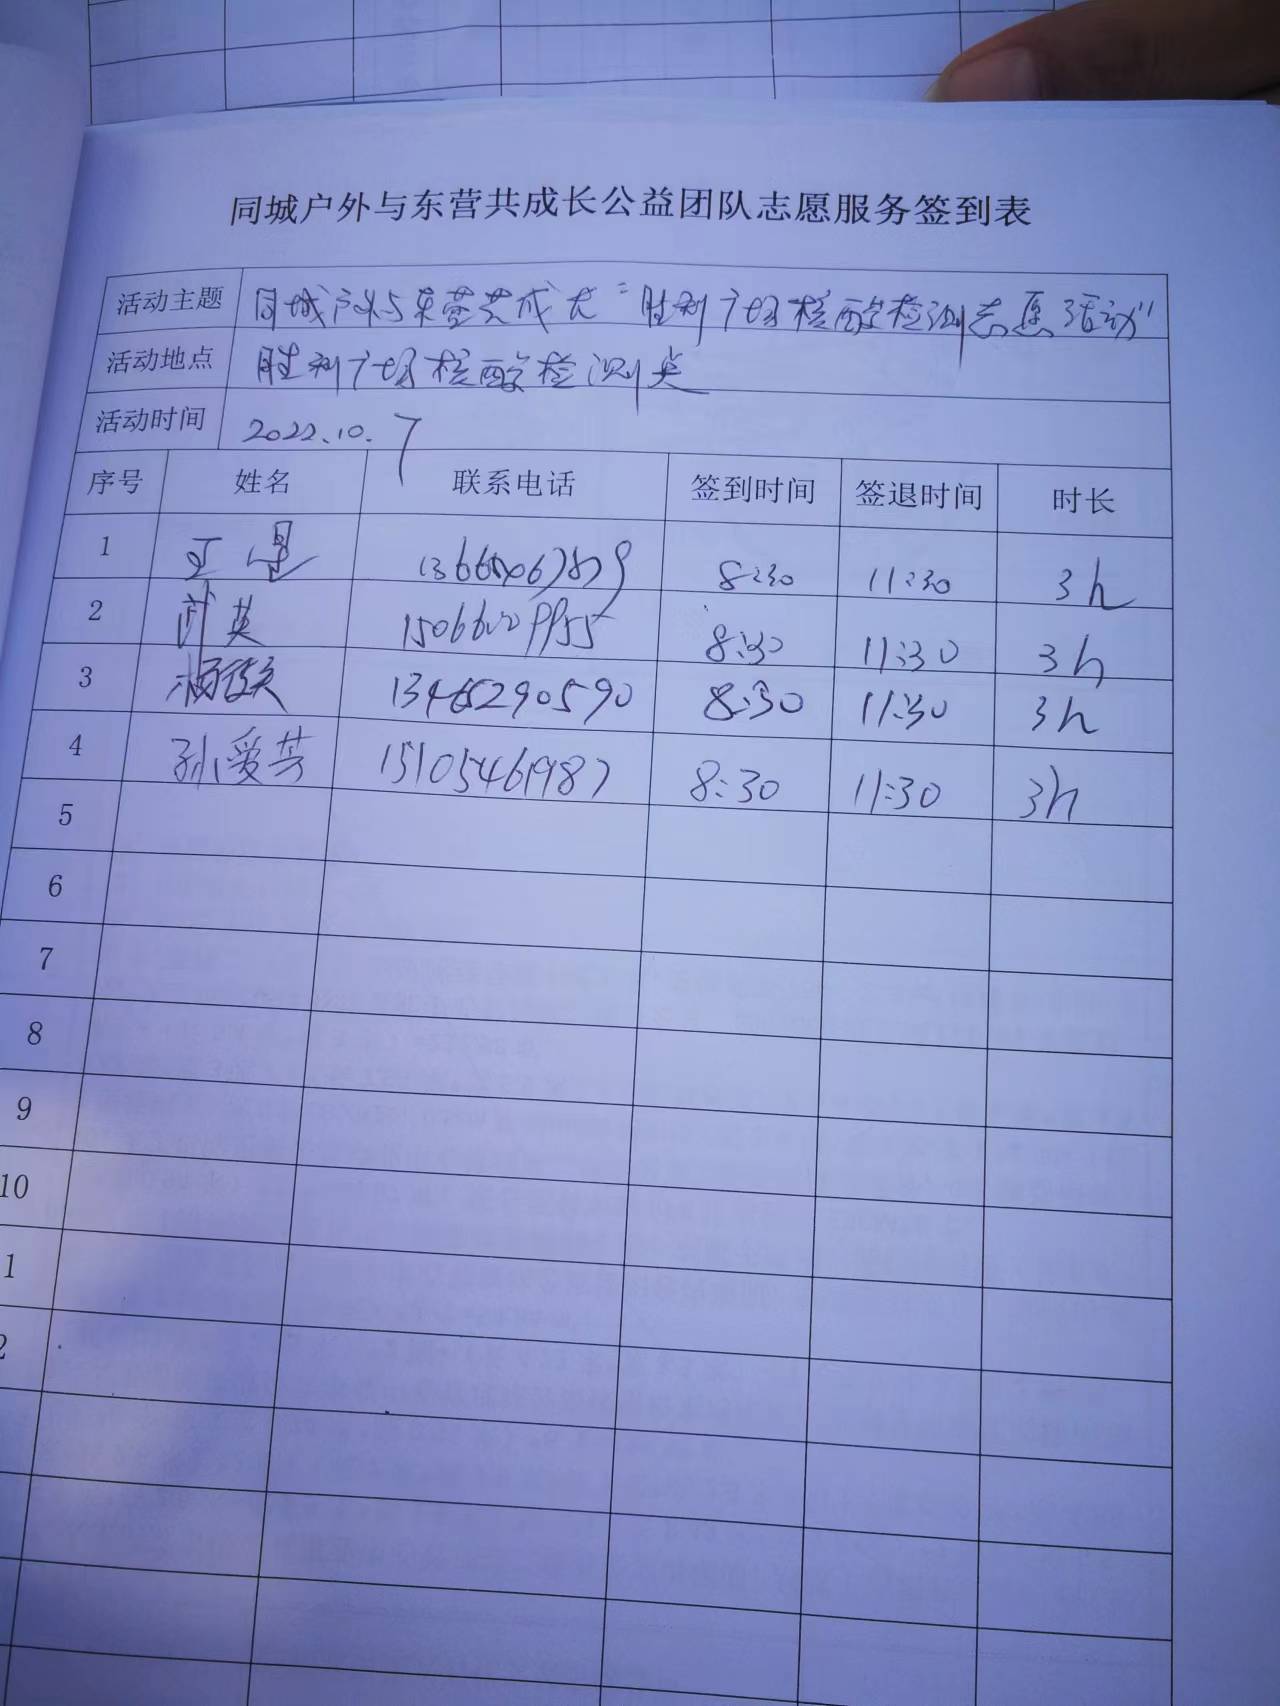 同城户外与东营共成长公益团队志愿服务签到表
活动主题 同城户外与东营共成长"胜利广场核酸检测志愿活动"
活动地点 胜利广场核酸检测点
活动时间 2022.10.7
序号 姓名 联系电话 签到时间 签退时间 时长
1 8:30 11:30 3h
2 英 8:30 11:30 3h
3 13465290590 8:30 11:30 3h
4 孙爱芳 15105461987 8:30 11:30 3h
5
6
7
8
9
10
1
2